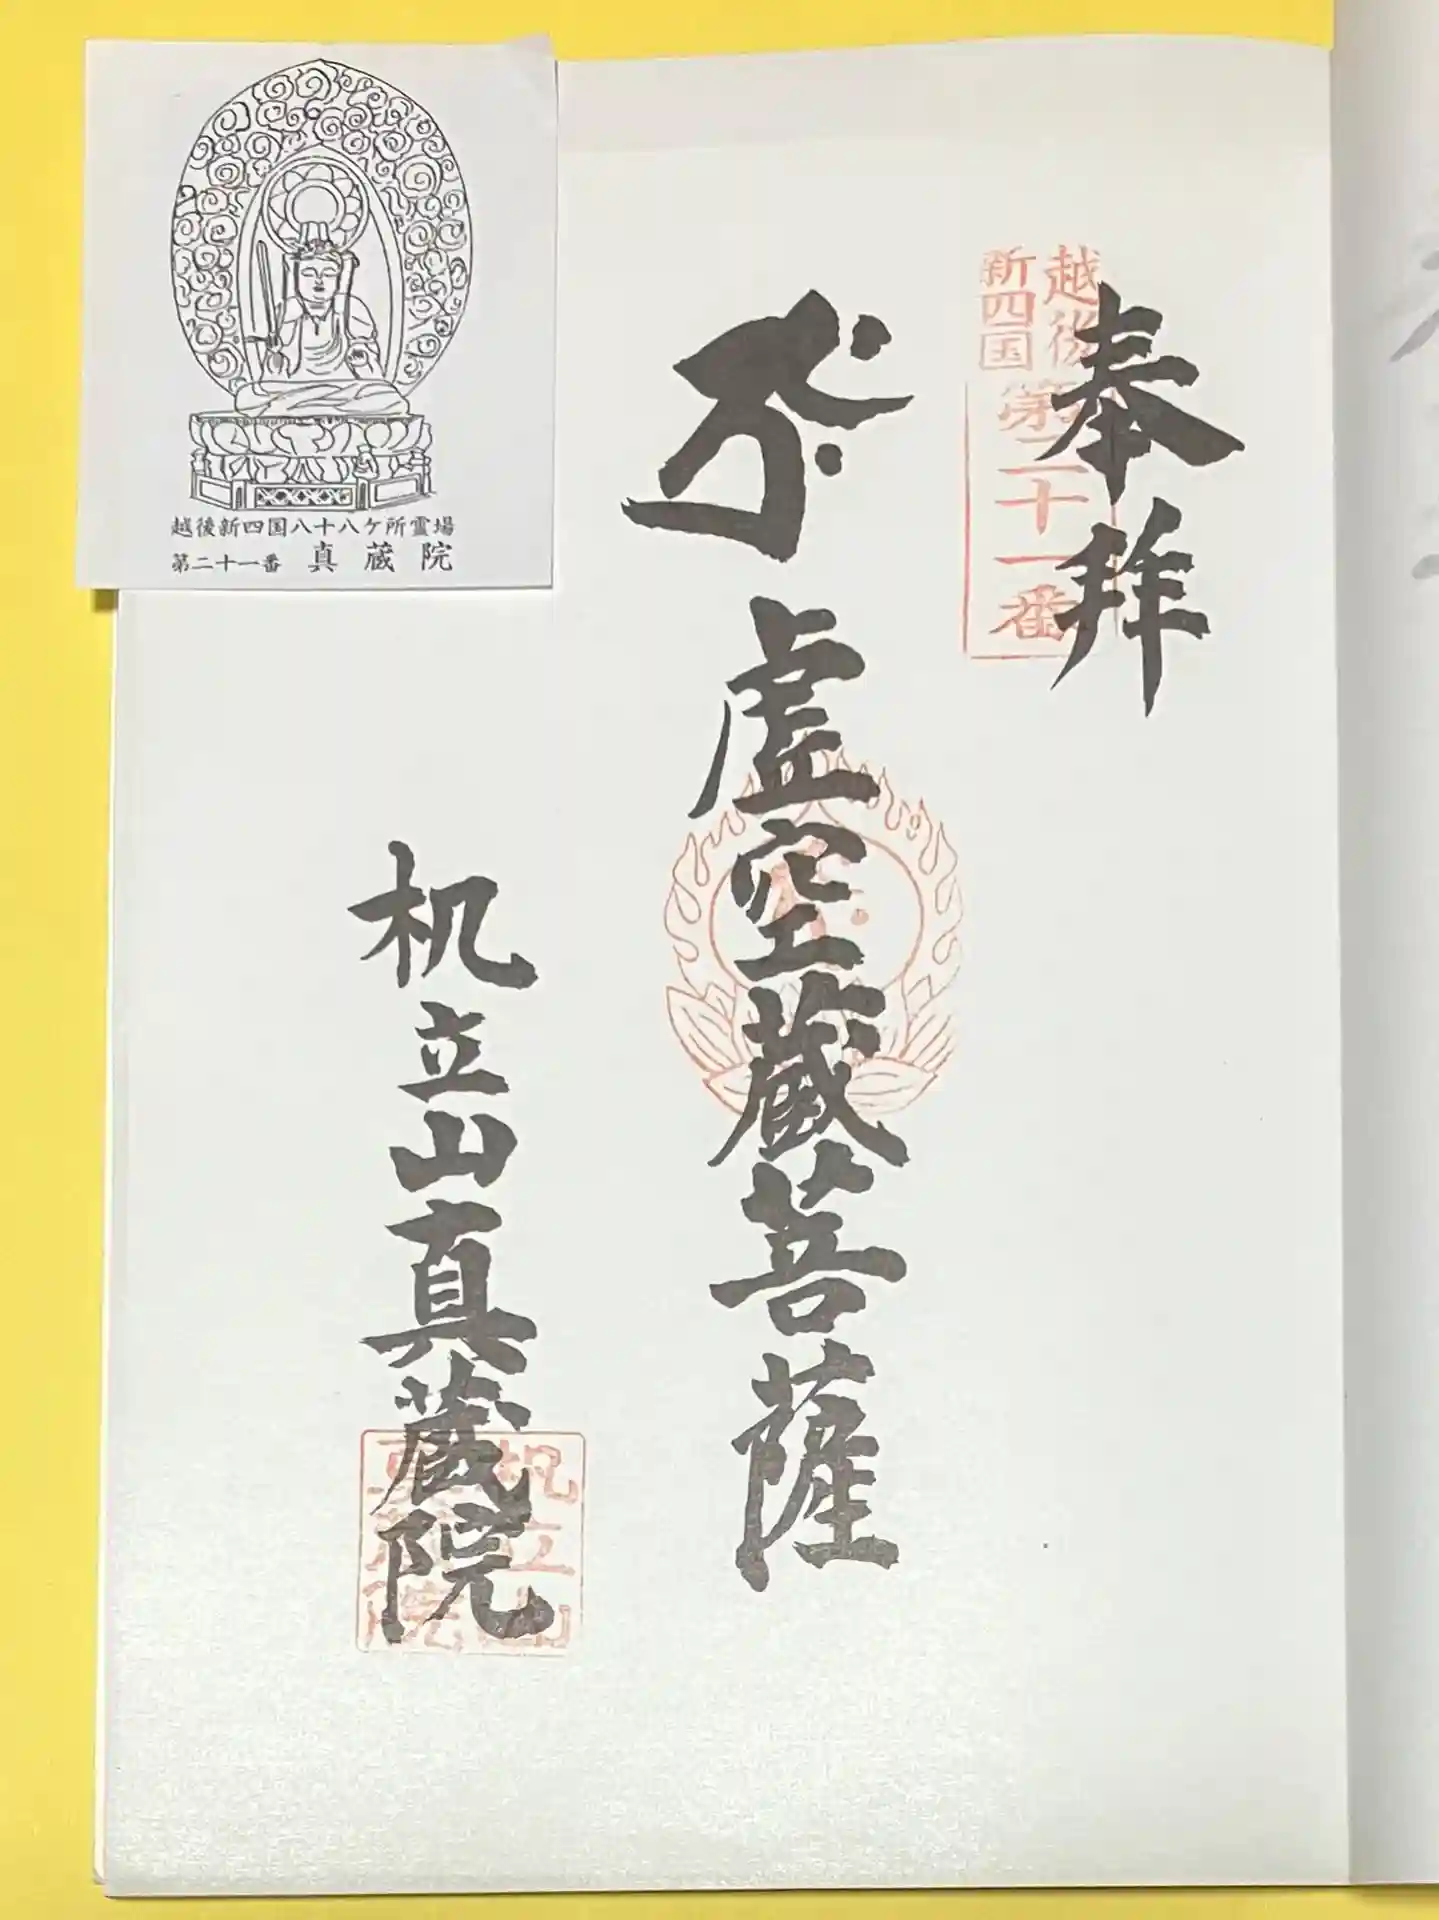 奉拝
越後
新四国
第二十一番
虚空蔵菩薩
机立山真蔵院
机立山
真蔵院
越後新四国八十八ケ所霊場
第二十一番 真蔵院